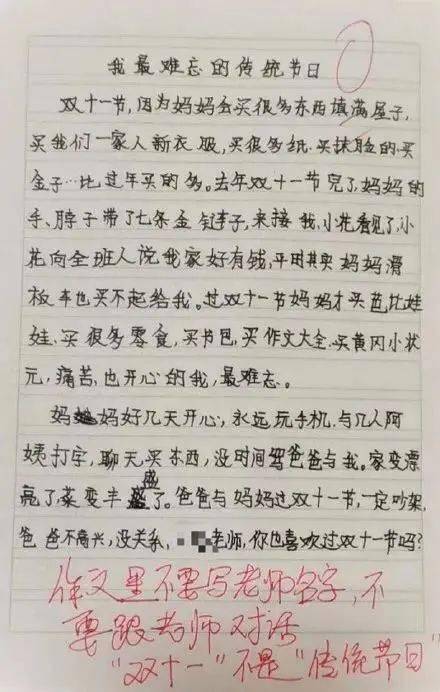 我最难忘的传统节日
双十一节,因为妈妈会买很多东西填满屋子,
买我们一家人新衣服,买很多纸.买抹脸的.买
金子…比过年买的多。去年双十一节完了,妈妈的
手、脖子带了七条金链子,来接我,小花看见了,小
花向全班人说我家好有钱,平时其实妈妈滑
板车也买不起给我。过双十一节妈妈才买芭比娃
娃、买很多零食,买书包,买作文大全.买黄冈小状
元,痛苦、也开心的我,最难忘。
妈妈好几天开心,永远玩手机.与几人阿
姨打字,聊天、买东西,没时间骂爸爸与我。家变漂
亮了,菜变丰盛了。爸爸与妈妈过双十一节,一定吵架,
爸爸不高兴,没关系,老师,你也喜欢过双十一节吗?
作文里不要写老师名字,不
要跟老师对话
"双十一"不是"传统节日"